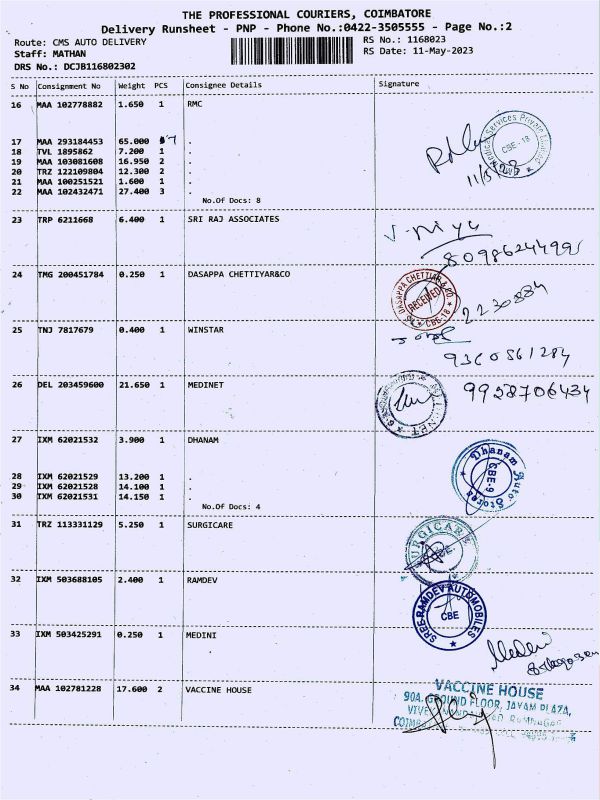 THE PROFESSIONAL COURIERS, COIMBATORE
Delivery Runsheet - PNP - Phone No.:0422-3505555 - Page No.:2
Route: CMS AUTO DELIVERY
RS No.: 1168023
Staff: MATHAN
RS Date: 11-May-2023
DRS No.: DCJB116802302
S No Consignment No Weight PCS Consignee Details Signature
16 MAA 102778882 1.650 1 RMC
17 MAA 293184453 65.000 .
18 TVL 1895862 7.200 1 .
19 MAA 103081608 16.950 2 .
20 TRZ 122109804 12.300 2 .
21 MAA 100251521 1.600 1 .
22 MAA 102432471 27.400 3 .
No.Of Docs: 8
CBE-18
23 TRP 6211668 6.400 1 SRI RAJ ASSOCIATES
24 TMG 200451784 0.250 1 DASAPPA CHETTIYAR&CO
DASAPPA CHETTIAR & CO
RECEIVED
CBE-18
2230884
25 TNJ 7817679 0.400 1 WINSTAR
9360561284
26 DEL 203459600 21.650 1 MEDINET
9928706434
27 IXM 62021532 3.900 1 DHANAM
28 IXM 62021529 13.200 1 .
29 IXM 62021528 14.100 1 .
30 IXM 62021531 14.150 1 .
No.Of Docs: 4
Dhanam Auto Stores
CBE-9
31 TRZ 113331129 5.250 1 SURGICARE
SURGICARE
CBE
32 IXM 503688105 2.400 1 RAMDEV
SREE RAMDEV AUTOMOBILES
CBE
33 IXM 503425291 0.250 1 MEDINI
34 MAA 102781228 17.600 2 VACCINE HOUSE
VACCINE HOUSE
90A, GROUND FLOOR, JAYAM PLAZA,